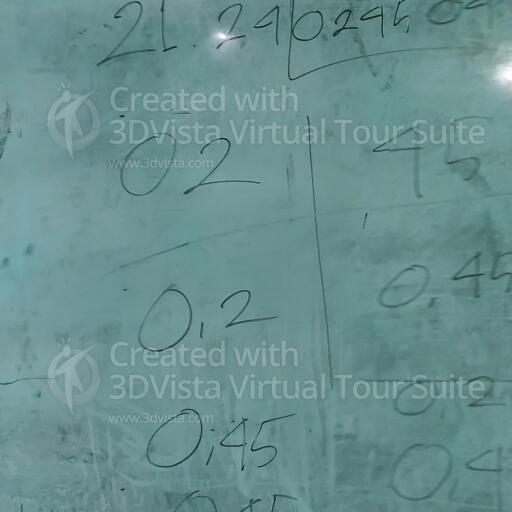 21.29 0.245 04
Created with
3DVista Virtual Tour Suite
www.3dvista.com
02 45
0.2 0.45
Created with
3DVista Virtual Tour Suite
www.3dvista.com
0.2
0.45 0.4